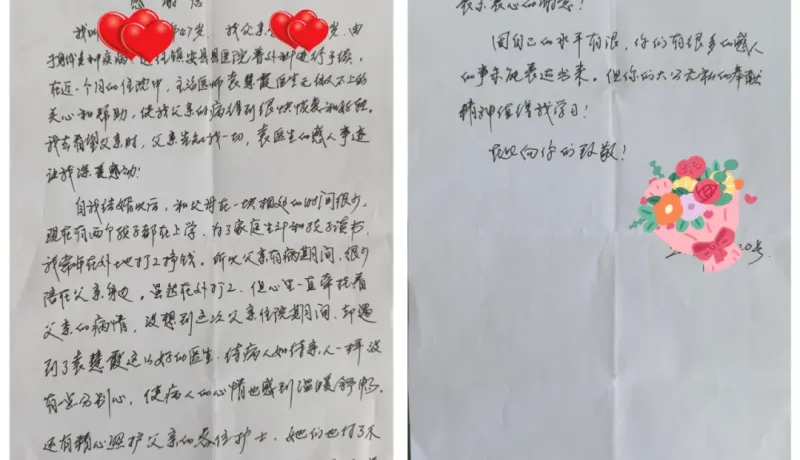 感谢信
我叫 47岁，我父亲 岁，由
于患 疾病，住镇安县医院普外科进行手术，
在近一个月的住院中，主治医师袁慧霞医生无微不至的
关心和帮助，使我父亲的病得到很快恢复和好转。
我去看望父亲时，父亲告知我一切，袁医生的感人事迹
让我深受感动！
自我结婚以后，和父母在一块相处的时间很少，
现在有两个孩子都在上学，为了家庭生计和孩子读书，
我常年在外地打工挣钱。所以父亲有病期间，很少
陪在父亲身边。虽然在外打工，但心里一直牵挂着
父亲的病情，没想到这次父亲住院期间，却遇
到了袁慧霞这么好的医生，待病人如待亲人一样没
有一点分别心，使病人的心情也感到温暖舒畅。
还有精心照护父亲的各位护士，她们也付了不
表示衷心的谢意！
因自己的水平有限，你们有很多的感人
的事未能表达出来。但你们大公无私的奉献
精神值得我学习！
在此向你们致敬！
2 20号